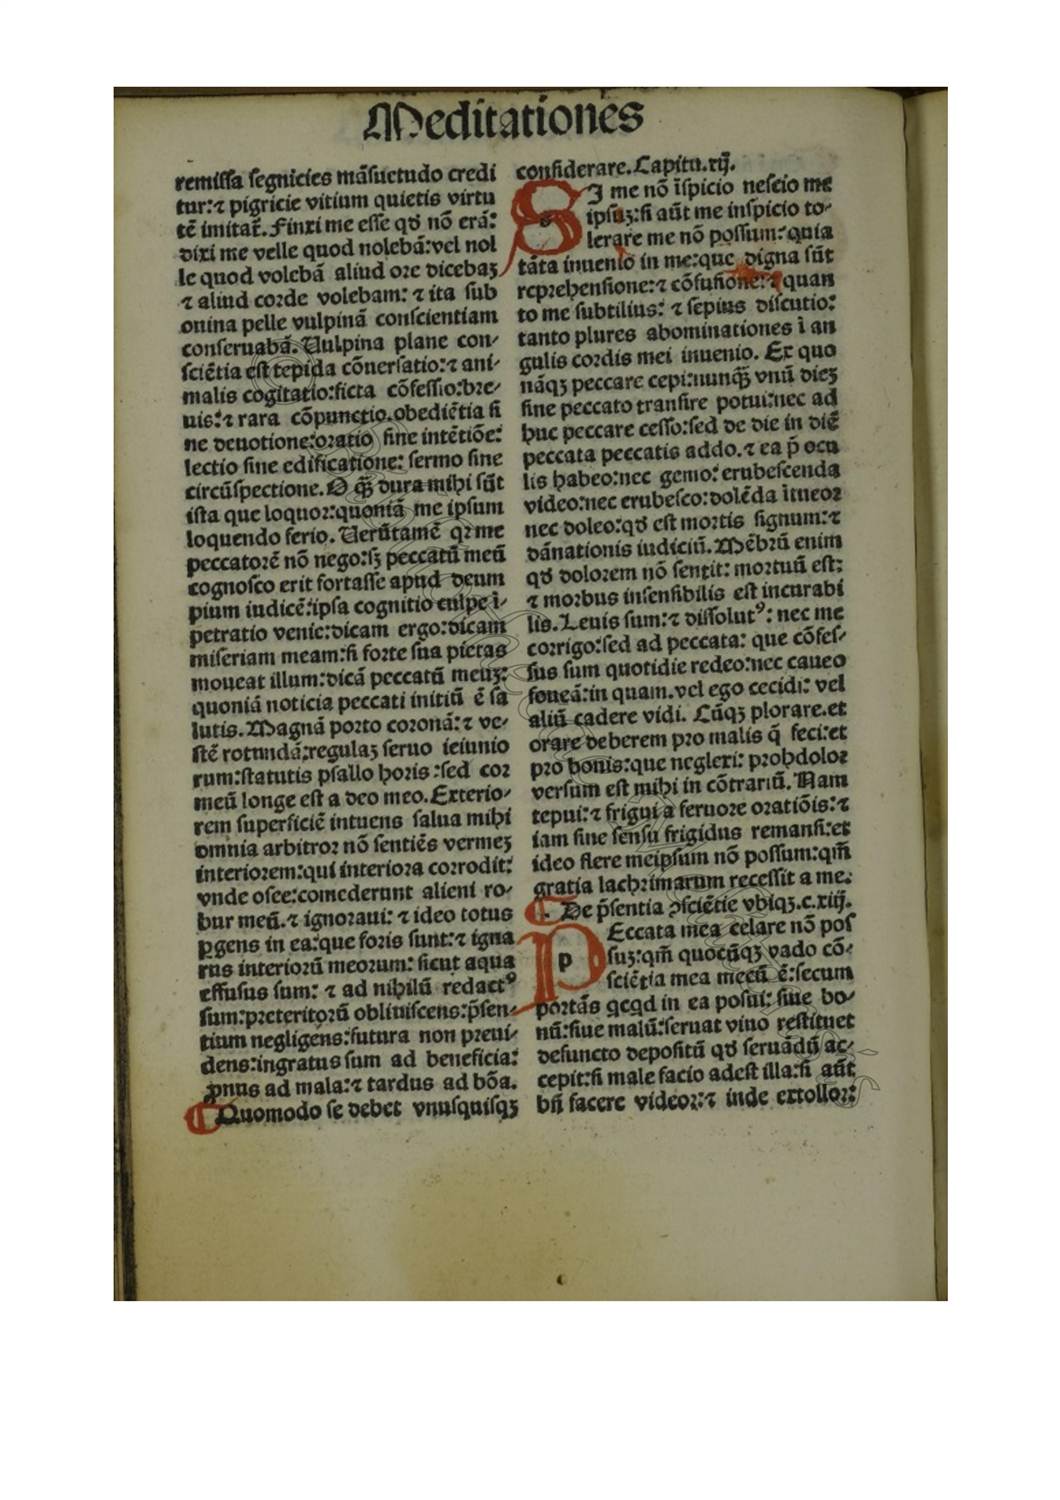 Meditationes
remissa segnicies mãsuetudo credi
tur:⁊ pigricie vitium quietis virtu
tẽ imitat̃. Finxi me esse qď nõ erã:
dixi me velle quod nolebã:vel nol
le quod volebã aliud ore dicebaꝫ
⁊ aliud corde volebam: ⁊ ita sub
onina pelle vulpinã conscientiam
conseruabã. Uulpina plane con⸗
sciẽtia est tepida cõuersatio:⁊ ani⸗
malis cogitatio:ficta cõfessio:bre⸗
uis:⁊ rara cõpunctio.obediẽtia si
ne deuotione:oratio sine intẽtiõe:
lectio sine edificatione: sermo sine
circũspectione. O qᷓꝫ dura mihi sũt
ista que loquor:quoniã me ipsum
loquendo ferio. Uerũtamẽ qꝛ me
peccatorẽ nõ nego:sꝫ peccatũ meũ
cognosco erit fortasse apud deum
pium iudicẽ:ipsa cognitio culpe ĩ⸗
petratio venie:dicam ergo:dicam
miseriam meam:si forte sua pietas
moueat illum:dicã peccatũ meuꝫ:
quoniã noticia peccati initiũ ẽ sa
lutis. Magnã porto coronã:⁊ ve⸗
stẽ rotundã:regulaꝫ seruo ieiunio
rum:statutis psallo horis:sed cor
meũ longe est a deo meo. Exterio⸗
rem superficiẽ intuens salua mihi
omnia arbitror nõ sentiẽs vermeꝫ
interiorem:qui interiora corrodit:
vnde osee:comederunt alieni ro⸗
bur meũ.⁊ ignoraui: ⁊ ideo totus
ꝑgens in ea:que foris sunt:⁊ igna
rus interiorũ meorum: sicut aqua
effusus sum: ⁊ ad nihilũ redactꝰ
sum:preteritorũ obliuiscens:p̃sen⸗
tium negligens:futura non preui⸗
dens:ingratus sum ad beneficia:
ꝓnus ad mala:⁊ tardus ad bõa.
¶ Quomodo se debet vnusquisqꝫ
considerare. Capitu.xij.
SI me nõ ĩspicio nescio me
ipsuꝫ:si aũt me inspicio to⸗
lerare me nõ possum:quia
tãta inuenio in me:que digna sũt
reprehensione:⁊ cõfusione:⁊ quan
to me subtilius: ⁊ sepius discutio:
tanto plures abominationes ĩ an
gulis cordis mei inuenio. Ex quo
nãqꝫ peccare cepi:nunqᷓꝫ vnũ dieꝫ
sine peccato transire potui:nec ad
huc peccare cesso:sed de die in diẽ
peccata peccatis addo.⁊ ea p̃ ocu
lis habeo:nec gemo: erubescenda
video:nec erubesco:dolẽda ĩtueor
nec doleo:qď est mortis signum:⁊
dãnationis iudiciũ. Mẽbrũ enim
qď dolorem nõ sentit: mortuũ est:
⁊ morbus insensibilis est incurabi
lis. Leuis sum:⁊ dissolutꝰ: nec me
corrigo:sed ad peccata: que cõfes⸗
sus sum quotidie redeo:nec caueo
foueã:in quam.vel ego cecidi: vel
aliũ cadere vidi. Cũqꝫ plorare.et
orare deberem pro malis q̃ feci:et
pro bonis:que neglexi: prohdolor
versum est mihi in cõtrariũ. Nam
tepui:⁊ frigui a feruore oratiõis:⁊
iam sine sensu frigidus remansi:et
ideo flere meipsum nõ possum:qm̃
gratia lachrimarum recessit a me.
¶. De p̃sentia ꝯsciẽtie vbiqꝫ.c.xiij.
PEccata mea celare nõ pos
suꝫ:qm̃ quocũqꝫ vado cõ⸗
sciẽtia mea mecũ ẽ:secum
portãs qcqd in ea posui: siue bo⸗
nũ:siue malũ:seruat viuo restituet
defuncto depositũ qď seruãdũ ac⸗
cepit:si male facio adest illa:si aũt
bñ facere videor:⁊ inde extollor: